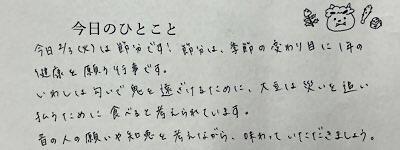 今日のひとこと
今日2/3(火)は節分です！節分は、季節の変わり目に1年の
健康を願う行事です。
いわしは匂いで鬼を遠ざけるために、大豆は災いを追い
払うために食べると考えられています。
昔の人の願いや知恵を考えながら、味わっていただきましょう。